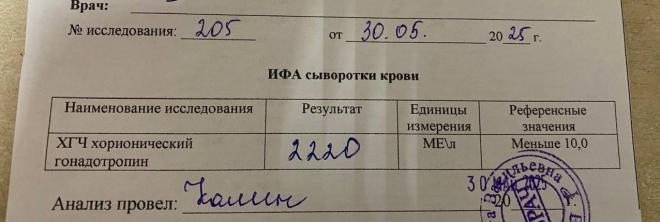 Врач:
№ исследования: 205 от 30.05. 2025 г.
ИФА сыворотки крови
Наименование исследования Результат Единицы измерения Референсные значения
ХГЧ хорионический гонадотропин 2220 МЕ\л Меньше 10,0
30 МАЙ 2025
Анализ провел: 20
Васильевна
ВРАЧ